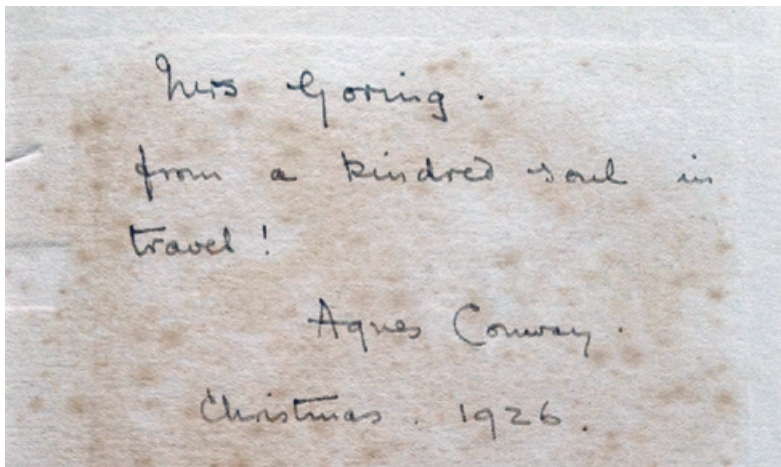 Mrs Goring.
from a kindred soul in
travel!
Agnes Conway.
Christmas. 1926.